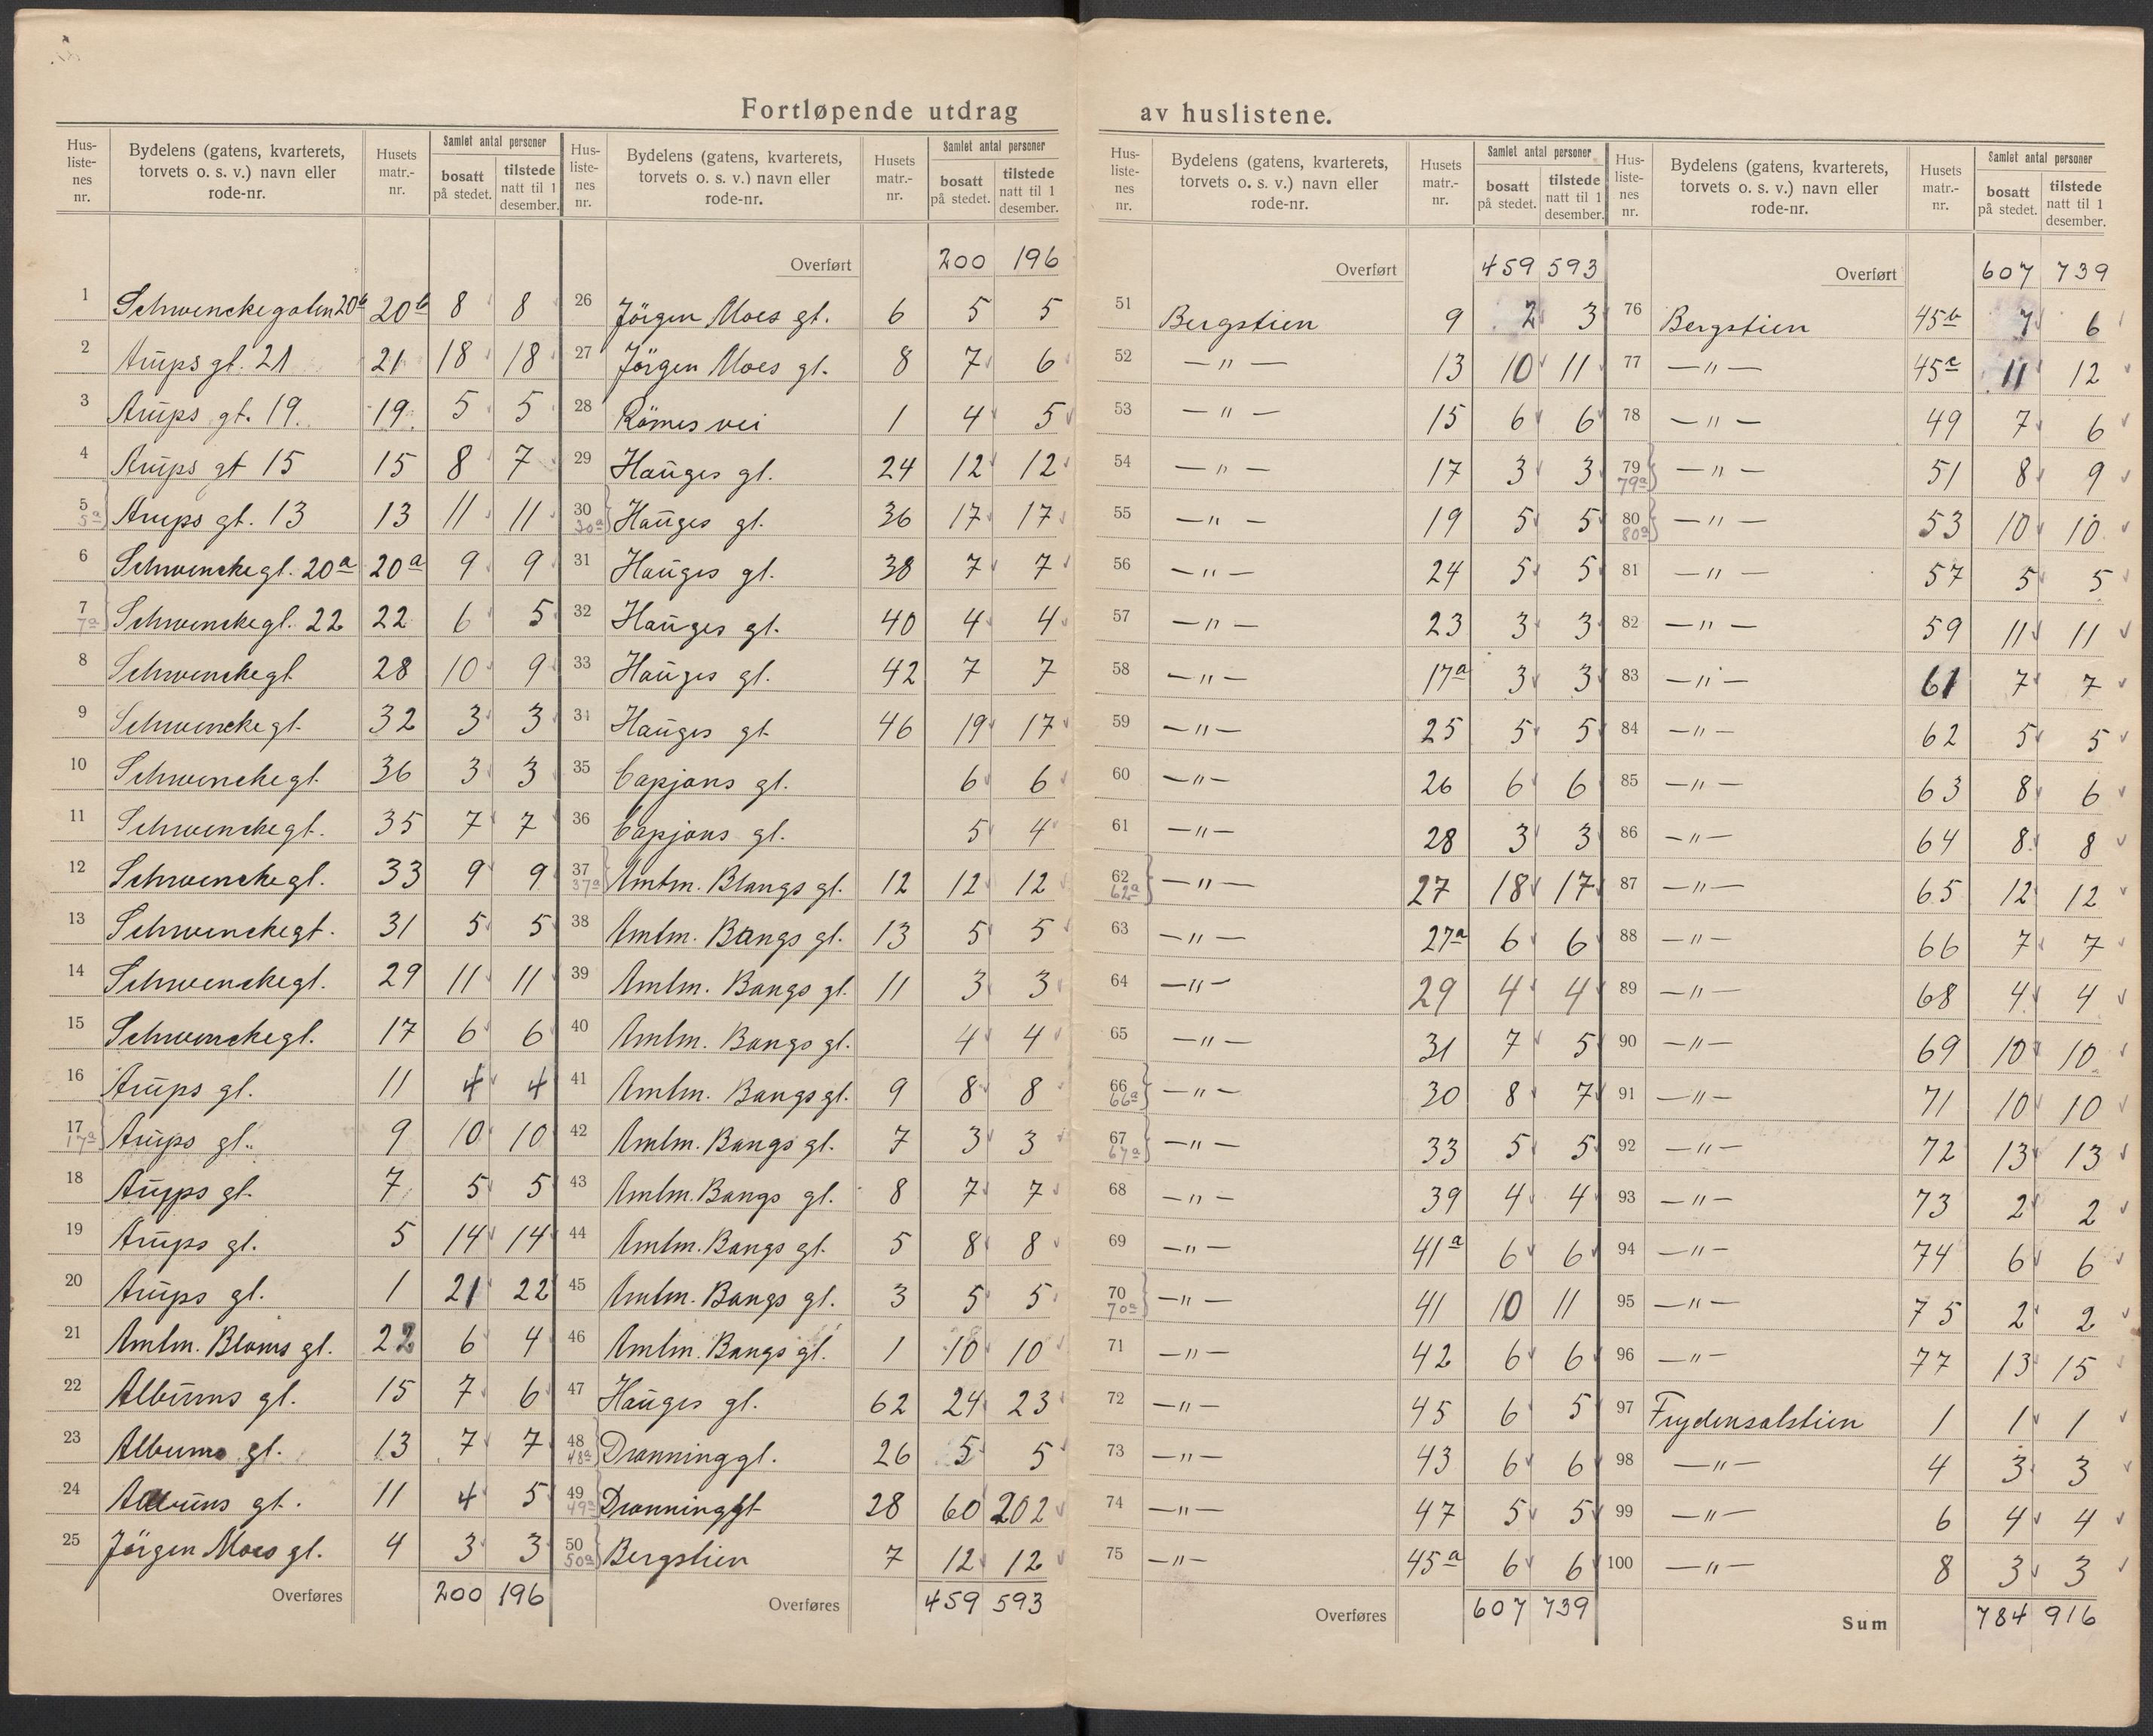 Fortløpende utdrag av huslistene.
Hus-listenes nr. | Bydelens (gatens, kvarterets, torvets o. s. v.) navn eller rode-nr. | Husets matr.-nr. | Samlet antal personer bosatt på stedet. | tilstede natt til 1 desember.
1 Schwenckegaten 20b 20b 8 8
2 Arups gt. 21 21 18 18
3 Arups gt. 19. 19. 5 5
4 Arups gt 15 15 8 7
5 5a Arups gt. 13 13 11 11
6 Schwenckegt. 20a 20a 9 9
7 7a Schwenckegt. 22 22 6 5
8 Schwenckegt 28 10 9
9 Schwenckegt. 32 3 3
10 Schwenckegt. 36 3 3
11 Schwenckegt. 35 7 7
12 Schwenckegt. 33 9 9
13 Schwenckegt. 31 5 5
14 Schwenckegt. 29 11 11
15 Schwenckegt. 17 6 6
16 Arups gt. 11 4 4
17 17a Arups gt. 9 10 10
18 Arups gt. 7 5 5
19 Arups gt. 5 14 14
20 Arups gt. 1 21 22
21 Amtm. Bloms gt. 22 6 4
22 Albums gt. 15 7 6
23 Albums gt. 13 7 7
24 Albums gt. 11 4 5
25 Jörgen Moes gt. 4 3 3
Overføres 200 196
Hus-listenes nr. | Bydelens (gatens, kvarterets, torvets o. s. v.) navn eller rode-nr. | Husets matr.-nr. | Samlet antal personer bosatt på stedet. | tilstede natt til 1 desember.
Overført 200 196
26 Jörgen Moes gt. 6 5 5
27 Jörgen Moes gt. 8 7 6
28 Römes vei 1 4 5
29 Hauges gt. 24 12 12
30 30a Hauges gt. 36 17 17
31 Hauges gt. 38 7 7
32 Hauges gt. 40 4 4
33 Hauges gt. 42 7 7
34 Hauges gt. 46 19 17
35 Capjons gt. 6 6
36 Capjons gt. 5 4
37 37a Amtm. Blangs gt. 12 12 12
38 Amtm. Bangs gt. 13 5 5
39 Amtm. Bangs gt. 11 3 3
40 Amtm. Bangs gt. 4 4
41 Amtm. Bangs gt. 9 8 8
42 Amtm. Bangs gt. 7 3 3
43 Amtm. Bangs gt. 8 7 7
44 Amtm. Bangs gt. 5 8 8
45 Amtm. Bangs gt. 3 5 5
46 Amtm. Bangs gt. 1 10 10
47 Hauges gt. 62 24 23
48 48a Dronninggt. 26 5 5
49 49a Dronninggt 28 60 202
50 50a Bergstien 7 12 12
Overføres 459 593
Hus-listenes nr. | Bydelens (gatens, kvarterets, torvets o. s. v.) navn eller rode-nr. | Husets matr.-nr. | Samlet antal personer bosatt på stedet. | tilstede natt til 1 desember.
Overført 459 593
51 Bergstien 9 2 3
52 — " — 13 10 11
53 — " — 15 6 6
54 — " — 17 3 3
55 — " — 19 5 5
56 — " — 24 5 5
57 — " — 23 3 3
58 — " — 17a 3 3
59 — " — 25 5 5
60 — " — 26 6 6
61 — " — 28 3 3
62 62a — " — 27 18 17
63 — " — 27a 6 6
64 — " — 29 4 4
65 — " — 31 7 5
66 66a — " — 30 8 7
67 67a — " — 33 5 5
68 — " — 39 4 4
69 — " — 41a 6 6
70 70a — " — 41 10 11
71 — " — 42 6 6
72 — " — 45 6 5
73 — " — 43 6 6
74 — " — 47 5 5
75 — " — 45a 6 6
Overføres 607 739
Hus-listenes nr. | Bydelens (gatens, kvarterets, torvets o. s. v.) navn eller rode-nr. | Husets matr.-nr. | Samlet antal personer bosatt på stedet. | tilstede natt til 1 desember.
Overført 607 739
76 Bergstien 45b 7 6
77 — " — 45c 11 12
78 — " — 49 7 6
79 79a — " — 51 8 9
80 80a — " — 53 10 10
81 — " — 57 5 5
82 — " — 59 11 11
83 — " — 61 7 7
84 — " — 62 5 5
85 — " — 63 8 6
86 — " — 64 8 8
87 — " — 65 12 12
88 — " — 66 7 7
89 — " — 68 4 4
90 — " — 69 10 10
91 — " — 71 10 10
92 — " — 72 13 13
93 — " — 73 2 2
94 — " — 74 6 6
95 — " — 75 2 2
96 — " — 77 13 15
97 Frydensalstien 1 1 1
98 — " — 4 3 3
99 — " — 6 4 4
100 — " — 8 3 3
Sum 784 916